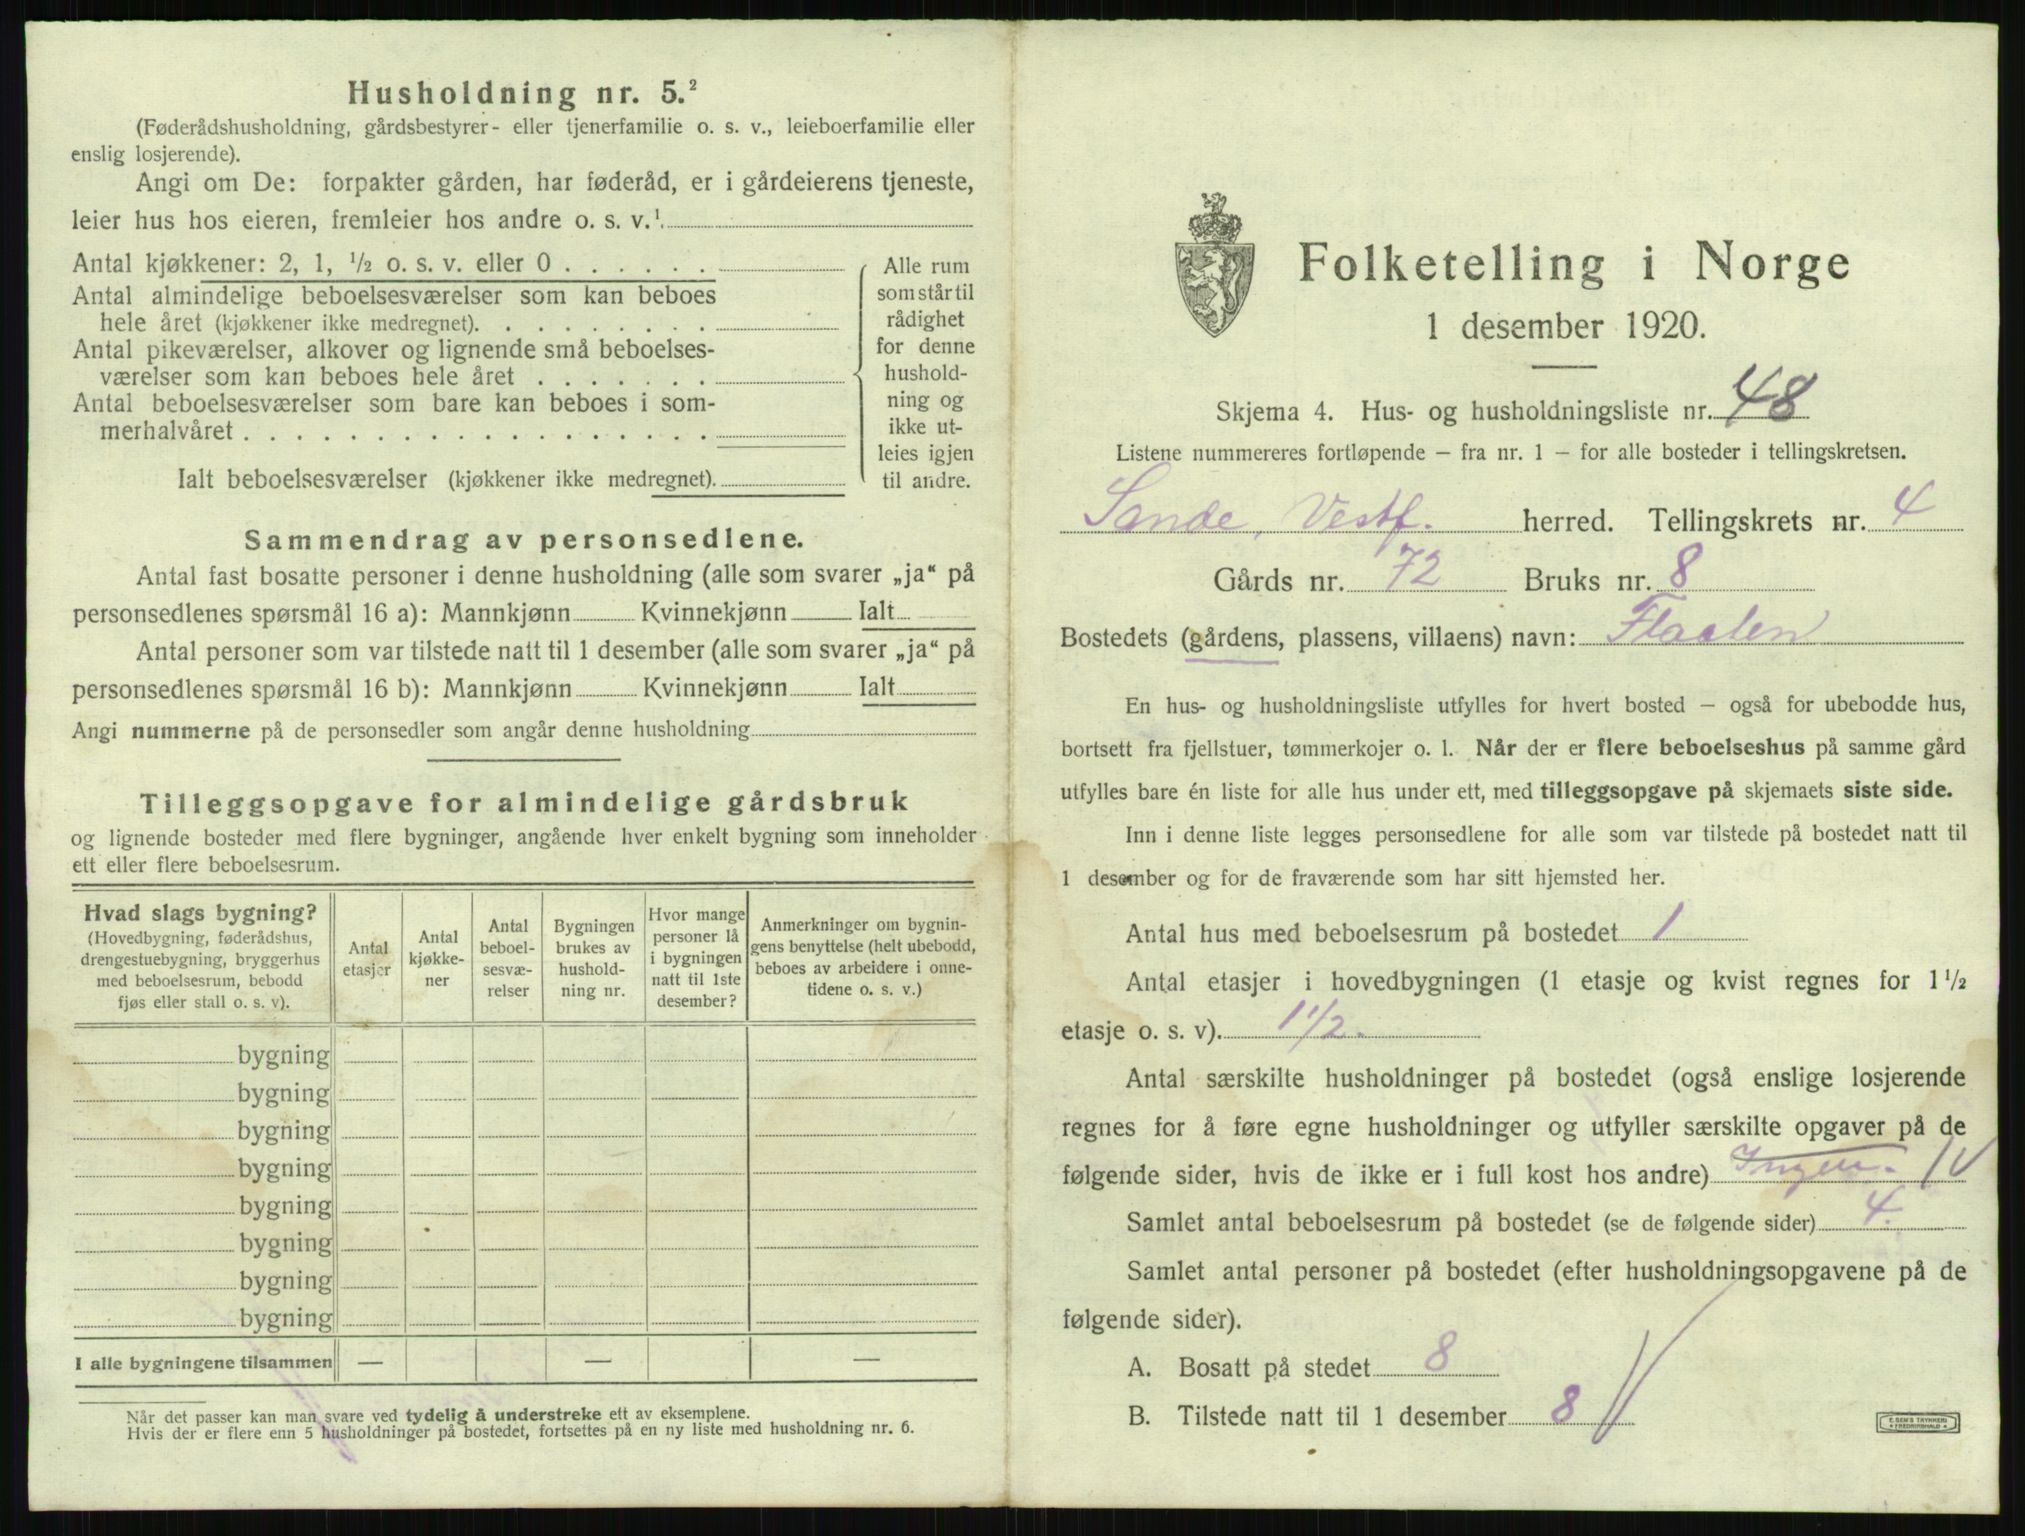 Husholdning nr. 5.²
(Føderådshusholdning, gårdsbestyrer- eller tjenerfamilie o. s. v., leieboerfamilie eller
enslig losjerende).
Angi om De: forpakter gården, har føderåd, er i gårdeierens tjeneste,
leier hus hos eieren, fremleier hos andre o. s. v.¹
Antal kjøkkener: 2, 1, ½ o. s. v. eller 0 . . . . . .
Antal almindelige beboelsesværelser som kan beboes
hele året (kjøkkener ikke medregnet). . . . . . . . .
Antal pikeværelser, alkover og lignende små beboelses-
værelser som kan beboes hele året . . . . . . .
Antal beboelsesværelser som bare kan beboes i som-
merhalvåret . . . . . . . . . . . . . . . . . .
Ialt beboelsesværelser (kjøkkener ikke medregnet).
Alle rum
som står til
rådighet
for denne
hushold-
ning og
ikke ut-
leies igjen
til andre.
Sammendrag av personsedlene.
Antal fast bosatte personer i denne husholdning (alle som svarer „ja“ på
personsedlenes spørsmål 16 a): Mannkjønn Kvinnekjønn Ialt
Antal personer som var tilstede natt til 1 desember (alle som svarer „ja“ på
personsedlenes spørsmål 16 b): Mannkjønn Kvinnekjønn Ialt
Angi nummerne på de personsedler som angår denne husholdning
Tilleggsopgave for almindelige gårdsbruk
og lignende bosteder med flere bygninger, angående hver enkelt bygning som inneholder
ett eller flere beboelsesrum.
Hvad slags bygning?
(Hovedbygning, føderådshus,
drengestuebygning, bryggerhus
med beboelsesrum, bebodd
fjøs eller stall o. s. v).
Antal
etasjer
Antal
kjøkke-
ner
Antal
beboel-
sesvæ-
relser
Bygningen
brukes av
hushold-
ning nr.
Hvor mange
personer lå
i bygningen
natt til 1ste
desember?
Anmerkninger om bygnin-
gens benyttelse (helt ubebodd,
beboes av arbeidere i onne-
tidene o. s. v.)
bygning
bygning
bygning
bygning
bygning
bygning
bygning
bygning
I alle bygningene tilsammen — — —
Når det passer kan man svare ved tydelig å understreke ett av eksemplene.
Hvis der er flere enn 5 husholdninger på bostedet, fortsettes på en ny liste med husholdning nr. 6.
Folketelling i Norge
1 desember 1920.
Skjema 4. Hus- og husholdningsliste nr. 48
Listene nummereres fortløpende – fra nr. 1 – for alle bosteder i tellingskretsen.
Sande, Vestf. herred. Tellingskrets nr. 4
Gårds nr. 72 Bruks nr. 8
Bostedets (gårdens, plassens, villaens) navn: Flaaten
En hus- og husholdningsliste utfylles for hvert bosted – også for ubebodde hus,
bortsett fra fjellstuer, tømmerkojer o. l. Når der er flere beboelseshus på samme gård
utfylles bare én liste for alle hus under ett, med tilleggsopgave på skjemaets siste side.
Inn i denne liste legges personsedlene for alle som var tilstede på bostedet natt til
1 desember og for de fraværende som har sitt hjemsted her.
Antal hus med beboelsesrum på bostedet 1
Antal etasjer i hovedbygningen (1 etasje og kvist regnes for 1 ½
etasje o. s. v). 1 1/2.
Antal særskilte husholdninger på bostedet (også enslige losjerende
regnes for å føre egne husholdninger og utfyller særskilte opgaver på de
følgende sider, hvis de ikke er i full kost hos andre) Ingen. 1
Samlet antal beboelsesrum på bostedet (se de følgende sider) 4.
Samlet antal personer på bostedet (efter husholdningsopgavene på de
følgende sider).
A. Bosatt på stedet 8
B. Tilstede natt til 1 desember 8
E. SEM'S TRYKKERI
FREDRIKSHALD